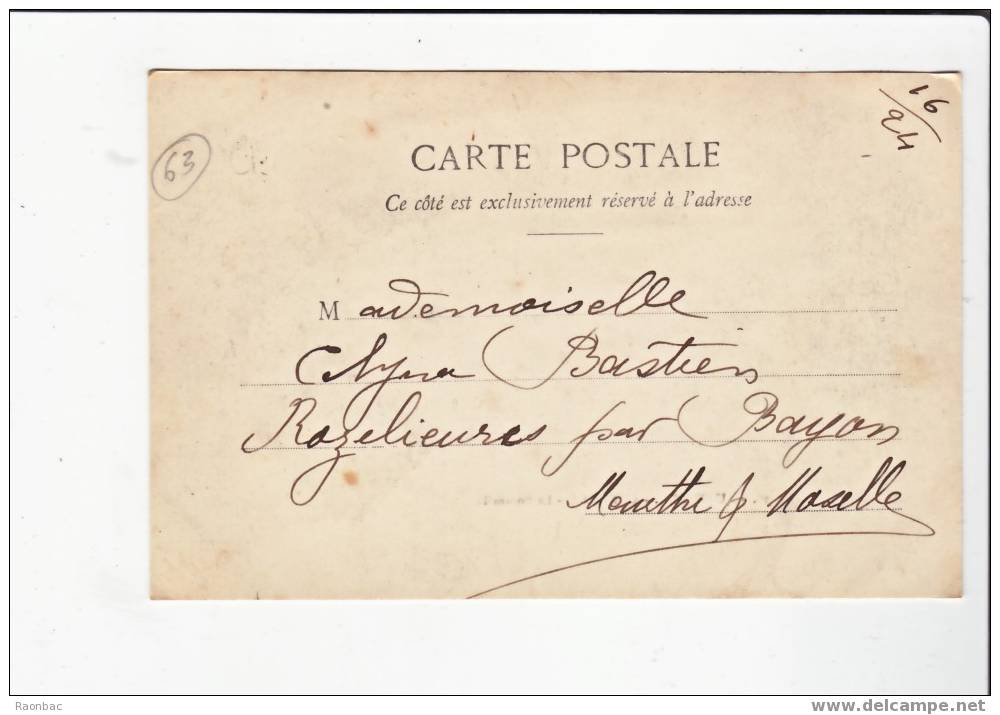 63
16
24
CARTE POSTALE
Ce côté est exclusivement réservé à l'adresse
Mademoiselle
Bastien
Rozelieures par Bayon
Meurthe & Moselle
Raonbac
www.delcampe.net